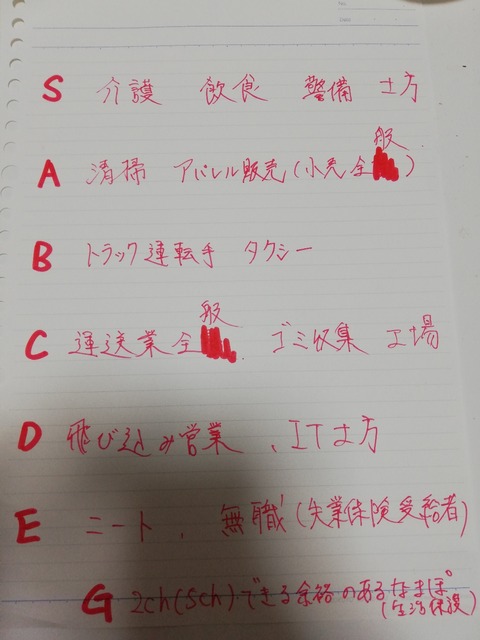 S 介護 飲食 警備 土方
A 清掃 アパレル販売(小売全般)
B トラック運転手 タクシー
C 運送業全般 ゴミ収集 工場
D 飛び込み営業、IT土方
E ニート、無職(失業保険受給者)
G 2ch(5ch)できる余裕のあるなまぽ。
(生活保護)